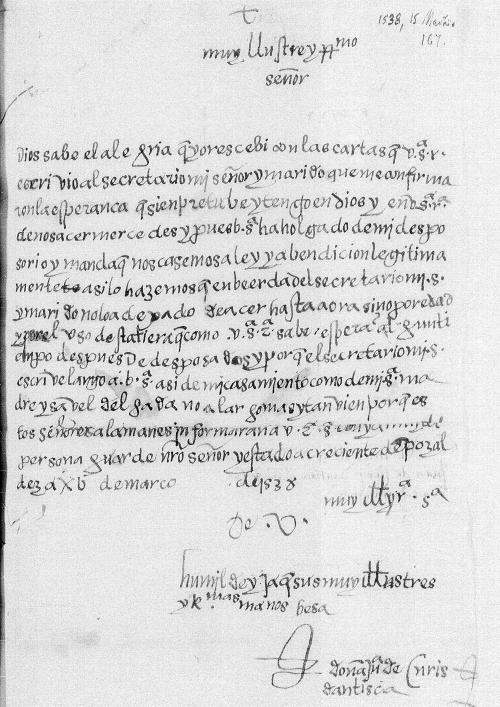 1538, 15 Martii
167.
muy Illustre y Rmo
señor
Dios sabe el alegria q yo rescebi con las cartas q v.sª.r.
escrivio al secretario mi señor y marido que me confirma
ron la esperanca q sienpre tube y tengo en dios y en v.sª.rª
de nos acer mercedes y pues b.sª ha holgado de mi despo
sorio y manda q nos casemos a ley y a bendicion legitima
mente asi lo hazemos q en beerdad el secretario mi.s.
y marido no lo a dexado de acer hasta aora sino por edad
y por el uso desta tierra q como v.sª.rª sabe esperan algun ti
empo despues de desposados y porq el secretario mi.s.
escrive largo a.b.sª asi de mi casamiento como de mi sª ma
dre y savel delgada no alargo mas y tanvien porq es
tos señores alamanes informaran a v.rª.sª cuya
persona guarde nro señor y estado acreciente de pozal
dez a xbº de marco de 1538
muy Illₑ y rª. sª
De. V.
humilde y q sus muy Illustres
y R.mas manos besa
doña juª de Curis
dantisca